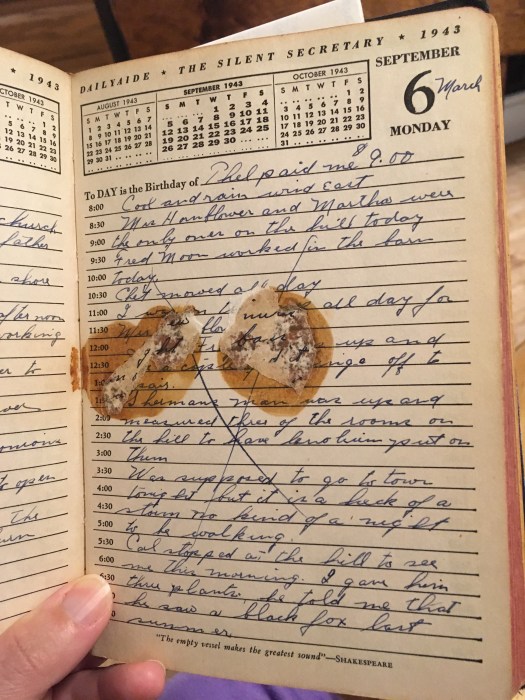 1943
OCTOBER 1943
T W T F S
1 2
5 6 7 8 9
12 13 14 15 16
19 20 21 22 23
26 27 28 29 30
church
father
shore
afternoon
working
er to
over
to open
The
DAILYAIDE ★ THE SILENT SECRETARY ★ 1943
AUGUST 1943
S M T W T F S
1 2 3 4 5 6 7
8 9 10 11 12 13 14
15 16 17 18 19 20 21
22 23 24 25 26 27 28
29 30 31
SEPTEMBER 1943
S M T W T F S
1 2 3 4
5 6 7 8 9 10 11
12 13 14 15 16 17 18
19 20 21 22 23 24 25
26 27 28 29 30
OCTOBER 1943
S M T W T F S
1 2
3 4 5 6 7 8 9
10 11 12 13 14 15 16
17 18 19 20 21 22 23
24 25 26 27 28 29 30
31
SEPTEMBER
6 March
MONDAY
To DAY is the Birthday of Phel paid me $9.00
8:00 Cool and rain wind East
8:30 Mrs Hornflower and Martha were
9:00 the only ones on the hill today
9:30 Fred Moon worked in the barn
10:00 Today
10:30 Chet mowed all day
11:00 I all day for
11:30
12:00 up and
12:30 off to
1:00
Sherman's man was up and
2:00 measured three of the rooms on
2:30 the hill to have lenolium put on
3:00 them
3:30 Was supposed to go to town
4:00 tonight but it is a heck of a
4:30 storm no kind of a night
5:00 to be walking.
5:30 Carl stopped at the hill to see
6:00 me this morning. I gave him
6:30 three plants he told me that
he saw a black fox last
summer
"The empty vessel makes the greatest sound"—SHAKESPEARE